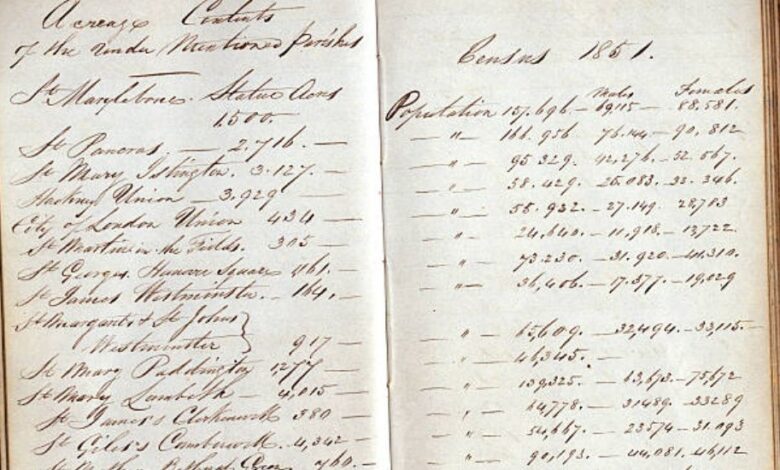 Acreage Contents
of the under Mentioned Parishes
St Marylebone. Statue Acres
1.500.
St Pancras. — 2.716. —
St Mary Islington. 3.127. —
Hackney Union — 3.929 —
City of London Union 434 —
St Martin in the Fields. 305 —
St Georges Hanover Square 1161. —
St James Westminster. — 164. —
St Margarets & St Johns
Westminster 917 —
St Mary Paddington 1277 —
St Mary Lambeth — 4,015 —
St James's Clerkenwell 380 —
St Giles's Camberwell. — 4,342 —
Green 760. —
Census 1851.
Males Females
Population 157.696. — 69,115 — 88.581.
— " — 166.956 76.144 — 90,812
— " — 95.329. 42.276. — 52.567.
— " — 58.429. — 26.083. — 32.346.
— " — 55.932. — 27.149. 28,783
— " — 24,640. — 11,918. — 13,722
— " — 73.230. — 31.920. — 41,310.
— " — 36,406. — 17.377. — 19,029
— " — 65,609. — 32,494. — 33,115. —
— " — 46,345. —
— " — 139325. — 63,673. — 75,672
— " — 64,778. — 31489. — 33289
— " — 54,667. — 23574 — 31.093
— " — 90,193. — 44,081. — 46,112